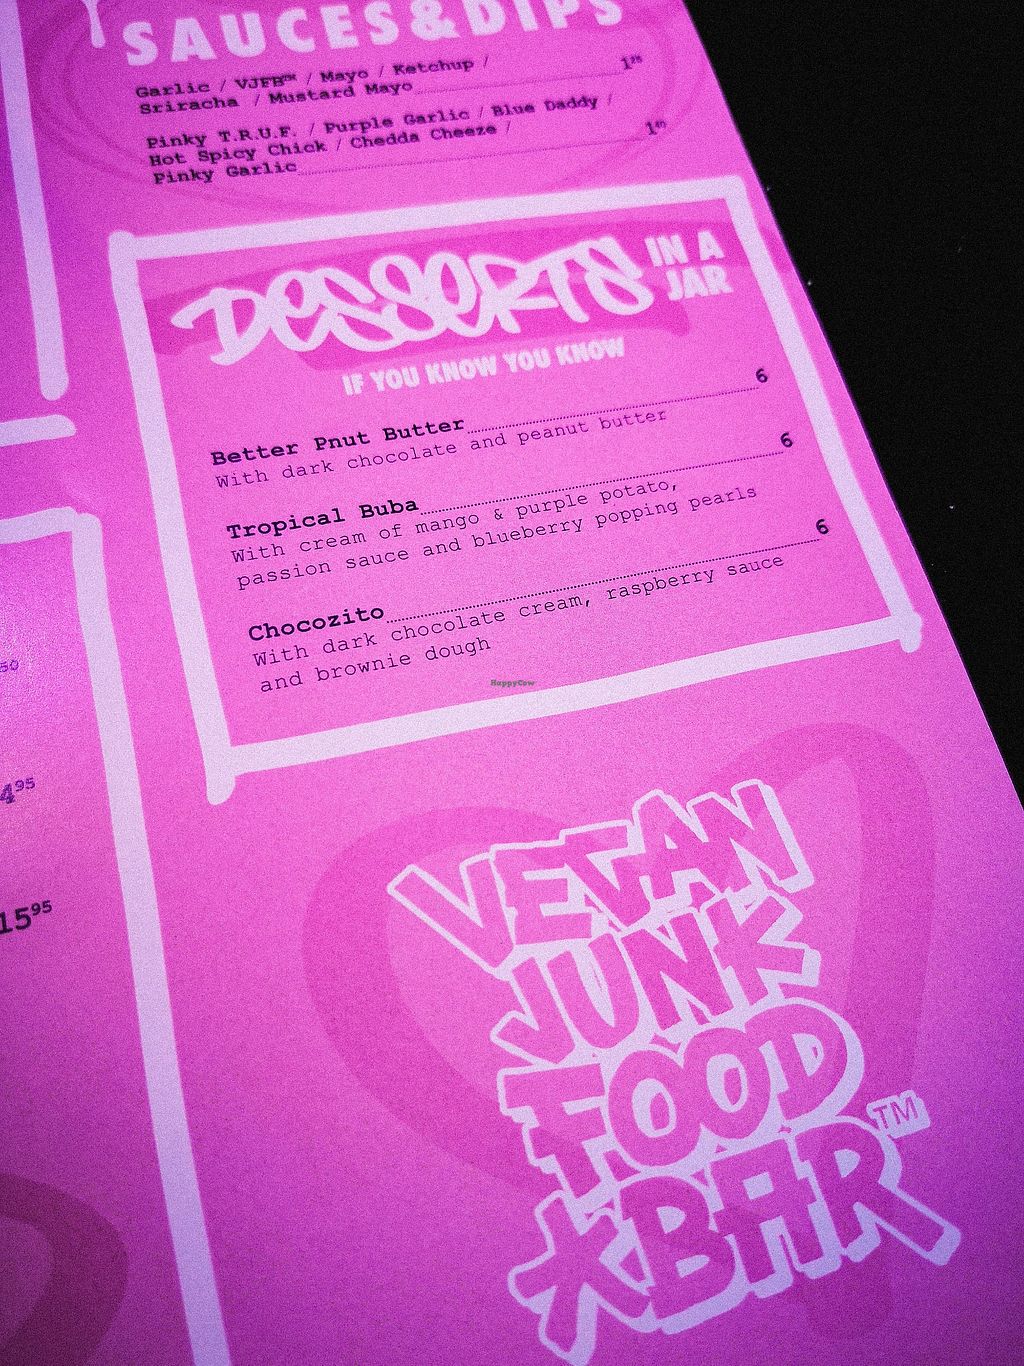 SAUCES&DIPS
Garlic / VJFB™ / Mayo / Ketchup /
Sriracha / Mustard Mayo
Pinky T.R.U.F. / Purple Garlic / Blue Daddy /
Hot Spicy Chick / Chedda Cheeze /
Pinky Garlic
DESSERTS IN A
JAR
IF YOU KNOW YOU KNOW
Better Pnut Butter 6
With dark chocolate and peanut butter
Tropical Buba 6
With cream of mango & purple potato,
passion sauce and blueberry popping pearls
Chocozito 6
With dark chocolate cream, raspberry sauce
and brownie dough
HappyCow
50
4⁹⁵
15⁹⁵
VEGAN
JUNK
FOOD
BAR™